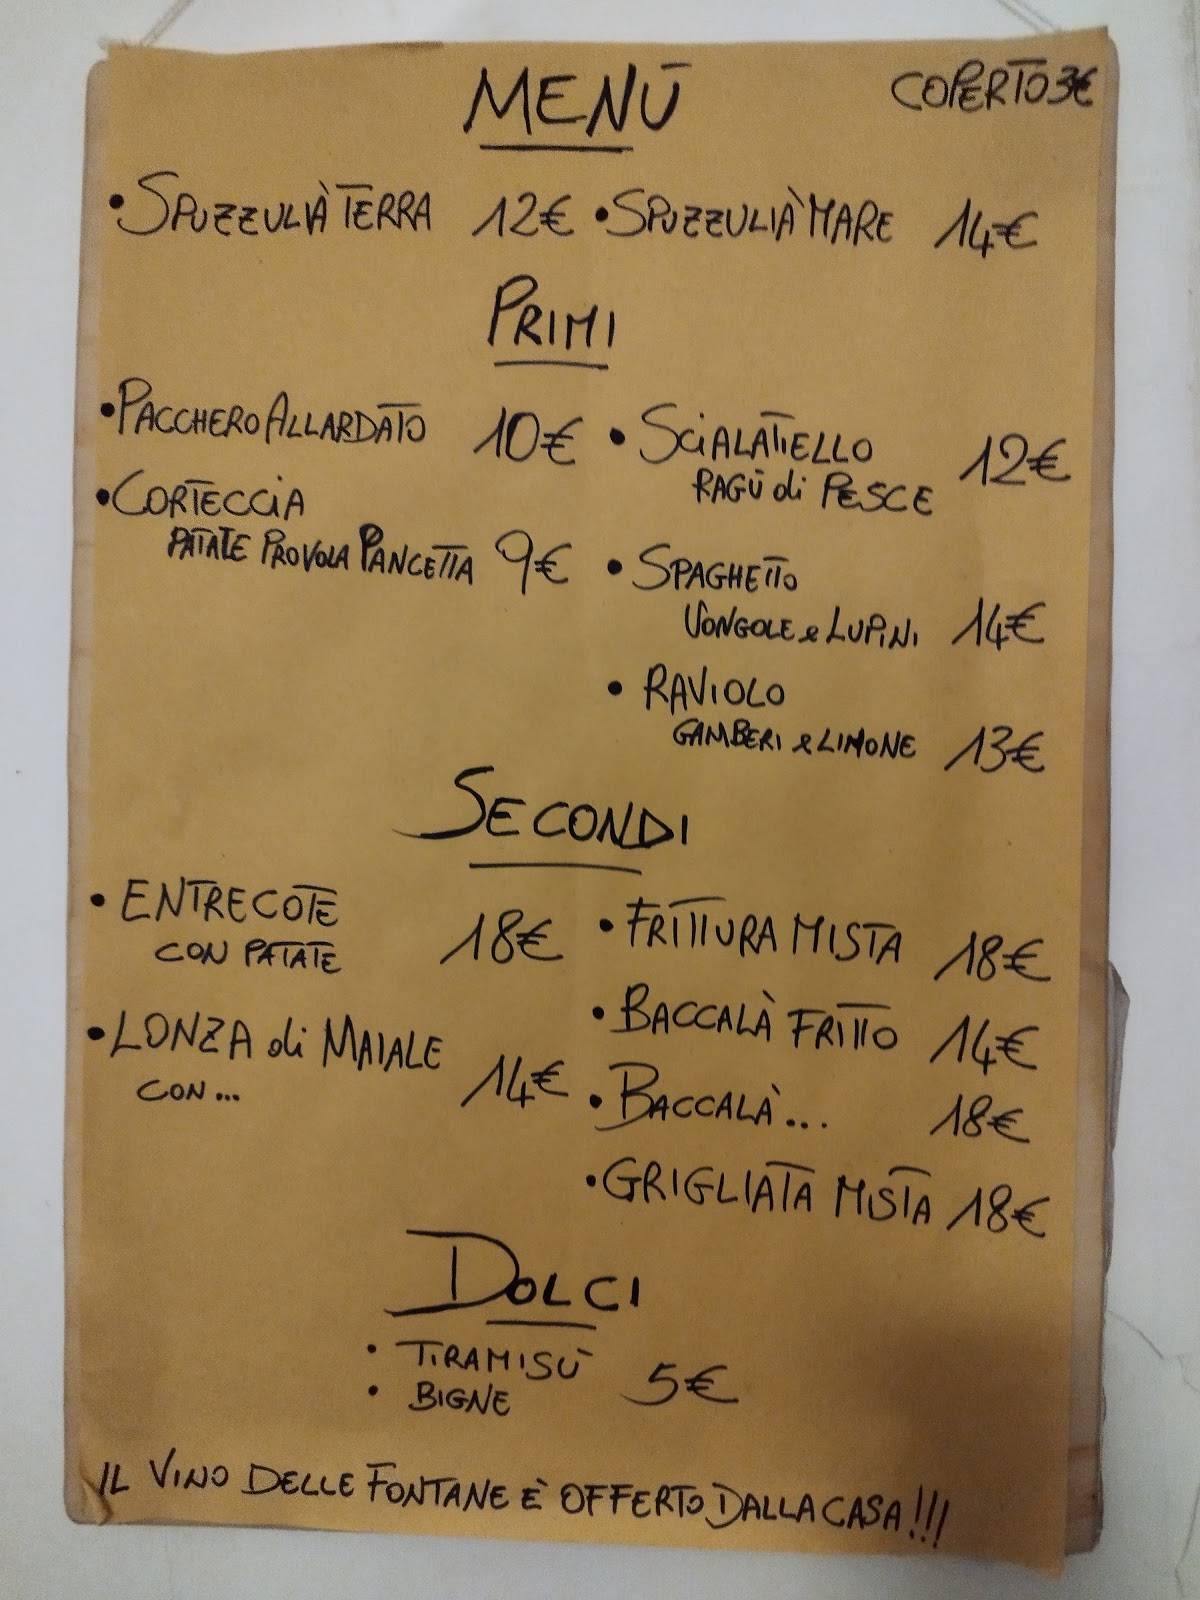 MENÙ
COPERTO 3€
• SPUZZULIÀ TERRA 12€ • SPUZZULIÀ MARE 14€
PRIMI
• PACCHERO ALLARDATO 10€
• CORTECCIA
PATATE PROVOLA PANCETTA 9€
• SCIALATIELLO
RAGÙ di PESCE 12€
• SPAGHETTO
VONGOLE e LUPINI 14€
• RAVIOLO
GAMBERI e LIMONE 13€
SECONDI
• ENTRECOTE
CON PATATE 18€
• LONZA di MAIALE
CON... 14€
• FRITTURA MISTA 18€
• BACCALÀ FRITTO 14€
• BACCALÀ... 18€
• GRIGLIATA MISTA 18€
DOLCI
• TIRAMISÙ
• BIGNE 5€
IL VINO DELLE FONTANE È OFFERTO DALLA CASA!!!